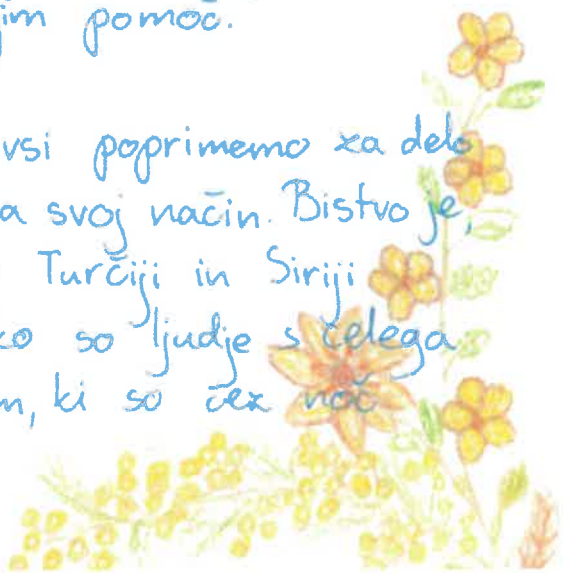 jim pomoč.
vsi poprimemo za delo
a svoj način. Bistvo je,
Turčiji in Siriji
ko so ljudje s celega
m, ki so čez noč